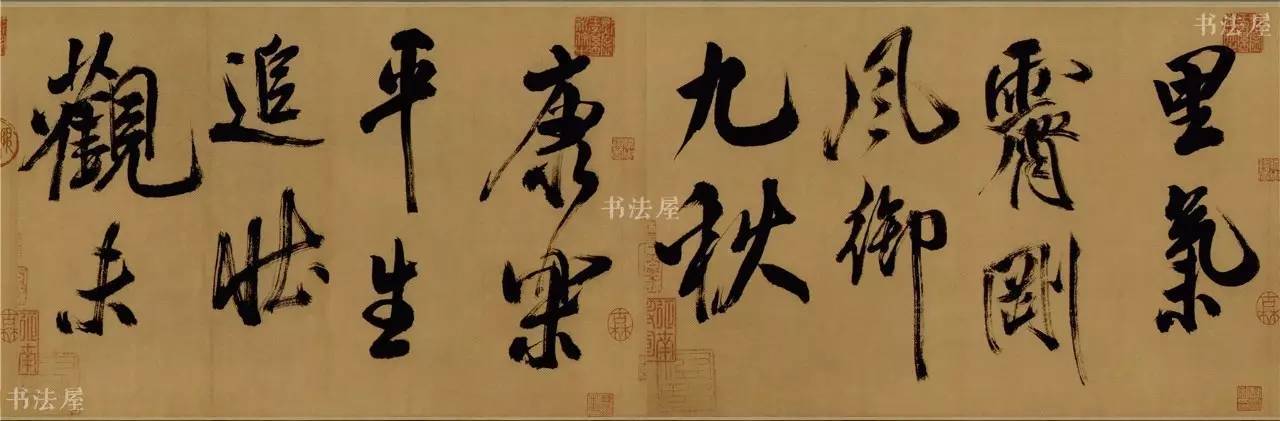 里氣
霽剛
風御
九秋
康樂
平生
追壯
觀未
书法屋
书法屋
书法屋